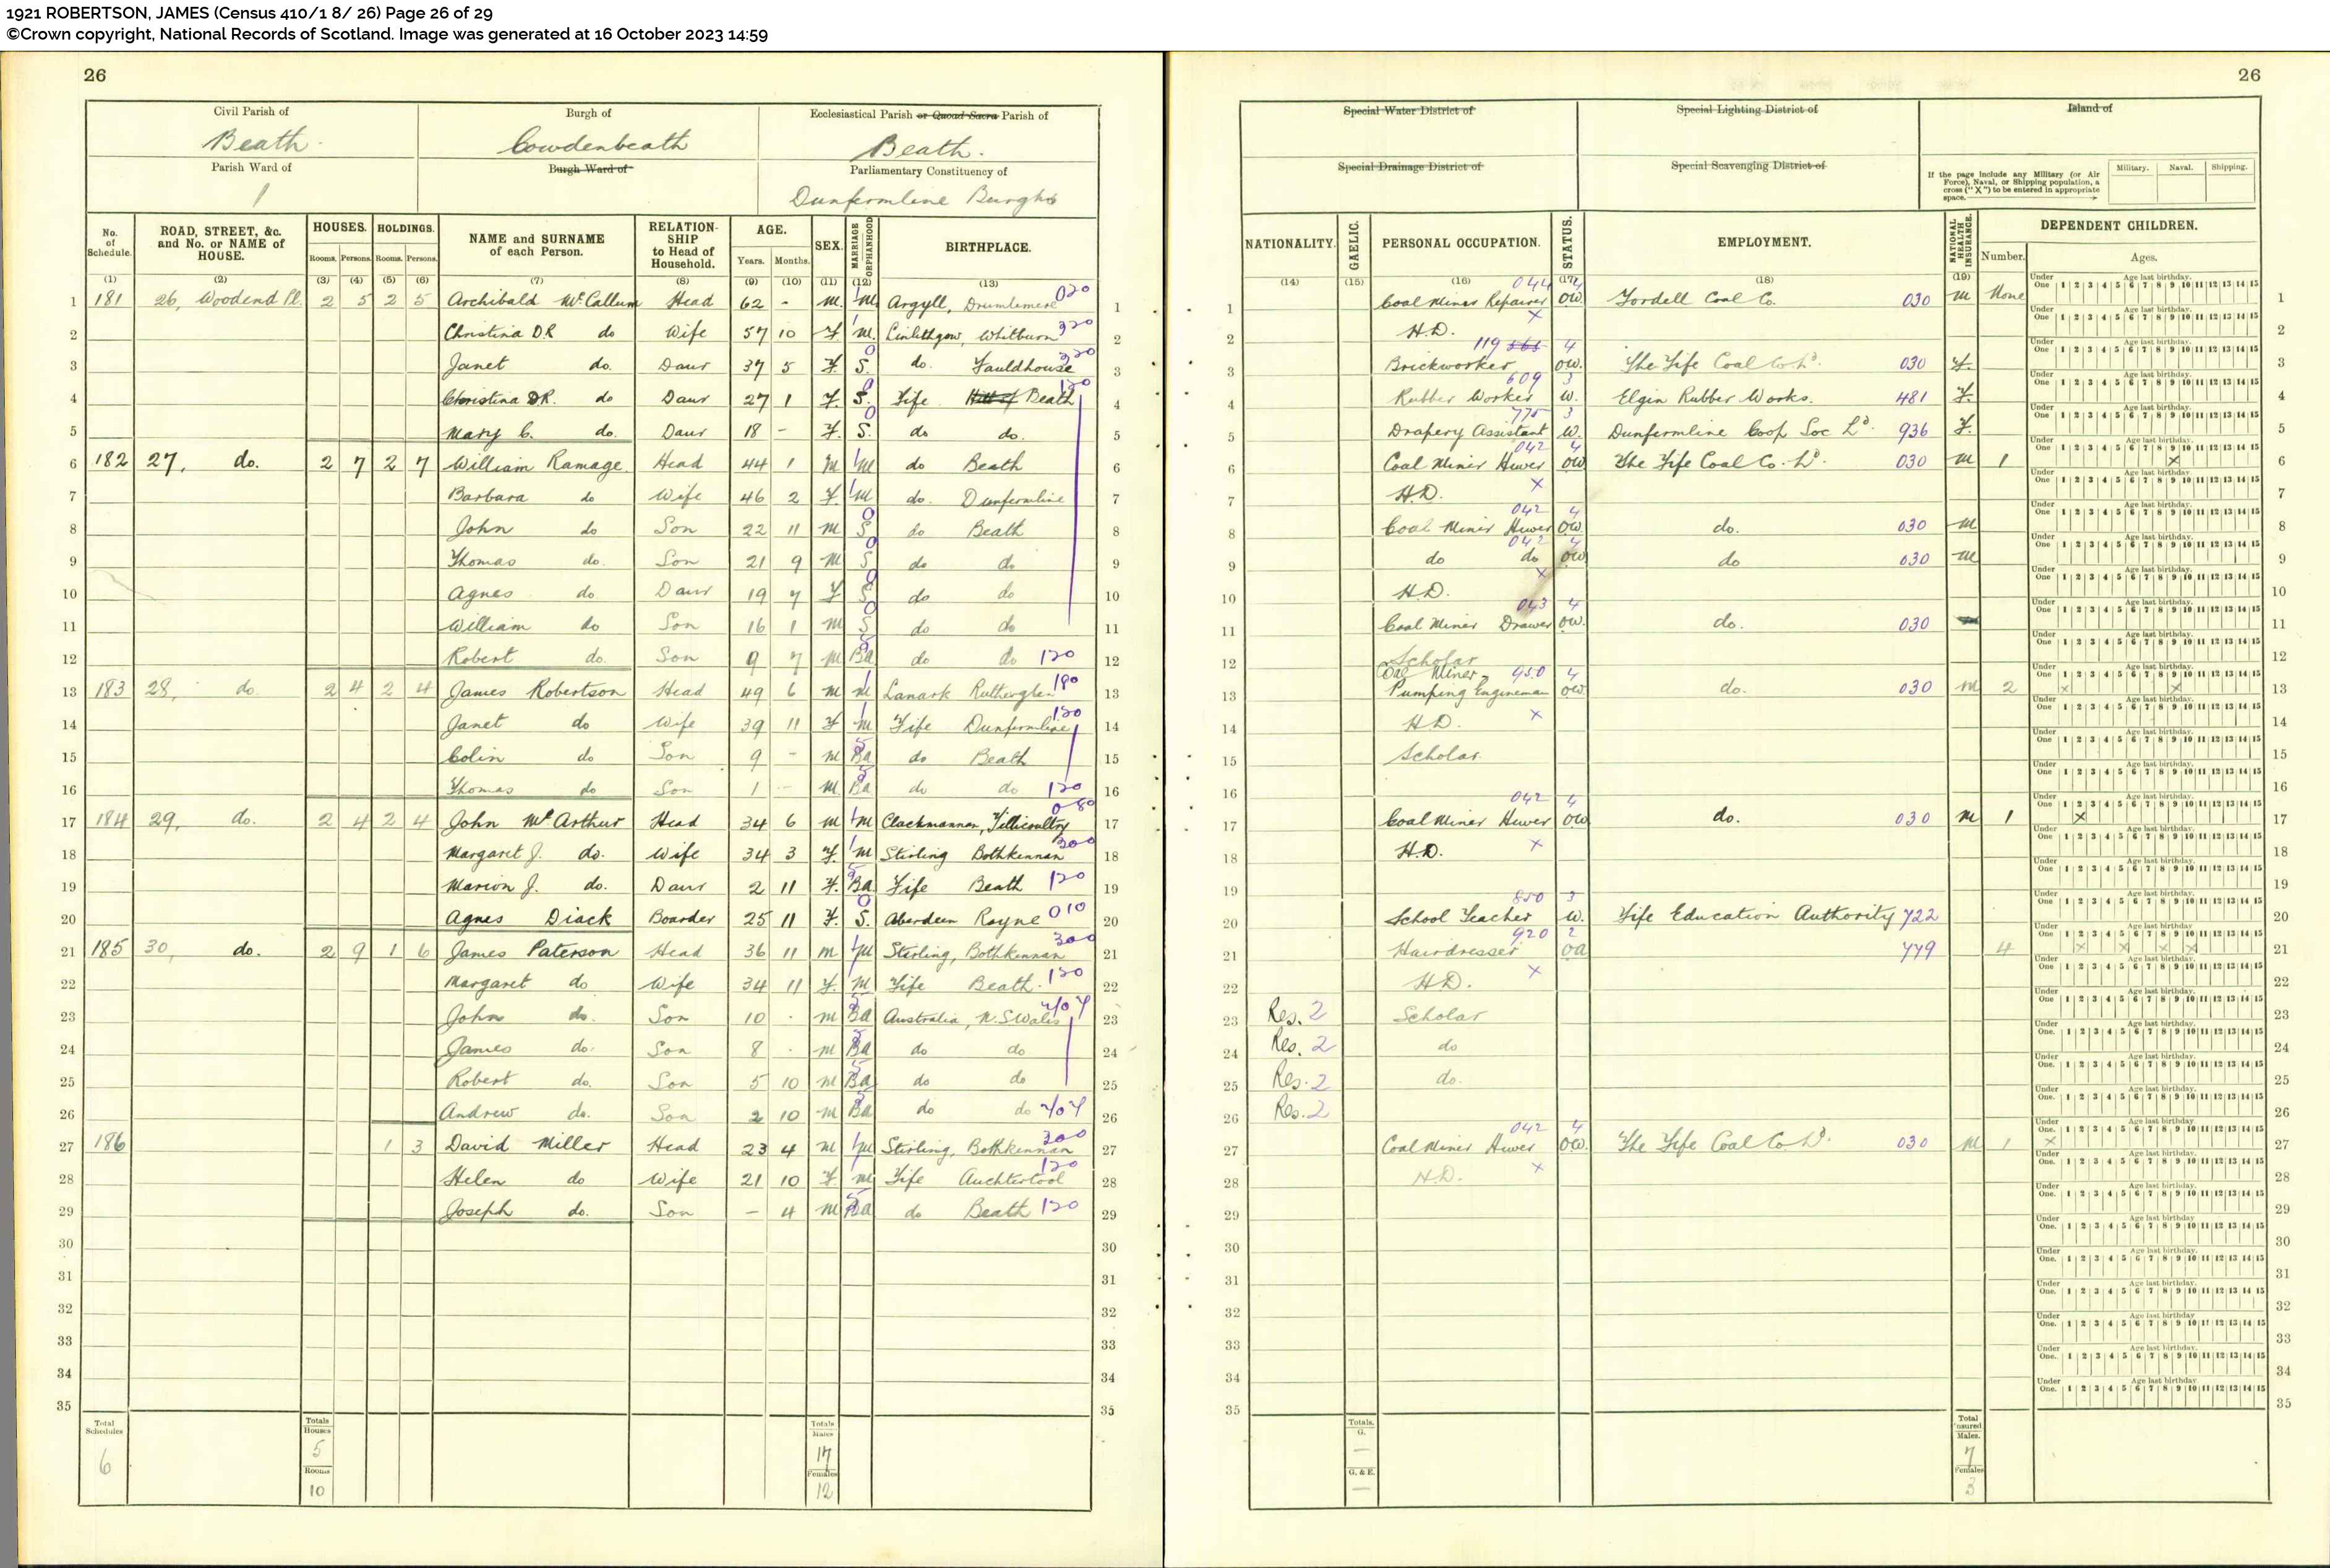 1921 ROBERTSON, JAMES (Census 410/1 8/ 26) Page 26 of 29
©Crown copyright, National Records of Scotland. Image was generated at 16 October 2023 14:59
26
Civil Parish of Beath
Burgh of Cowdenbeath
Ecclesiastical Parish or Quoad Sacra Parish of Beath.
Parish Ward of 1
Burgh Ward of
Parliamentary Constituency of Dunfermline Burghs
No. of Schedule. (1)
ROAD, STREET, &c. and No. or NAME of HOUSE. (2)
HOUSES. Rooms. (3) Persons. (4)
HOLDINGS. Rooms. (5) Persons. (6)
NAME and SURNAME of each Person. (7)
RELATIONSHIP to Head of Household. (8)
AGE. Years. (9) Months. (10)
SEX. (11)
MARRIAGE ORPHANHOOD (12)
BIRTHPLACE. (13)
1 181 26, Woodend Pl. 2 5 2 5 Archibald McCallum Head 62 - M. 1 M Argyll, Drumlemere 020 1
2 Christina DR do Wife 57 10 F 1 M. Linlithgow, Whitburn 320 2
3 Janet do. Daur 37 5 F. 0 S. do. Fauldhouse 320 3
4 Christina DR. do Daur 27 1 F. 0 S. Fife Hill of Beath 120 4
5 Mary C. do. Daur 18 - F. 0 S. do do. 5
6 182 27, do. 2 7 2 7 William Ramage Head 44 1 M 1 M do Beath 6
7 Barbara do Wife 46 2 F. 1 M do. Dunfermline 7
8 John do Son 22 11 M 0 S do Beath 8
9 Thomas do. Son 21 9 M 0 S do do 9
10 Agnes do Daur 19 7 F 0 S do do 10
11 William do Son 16 1 M 0 S do do 11
12 Robert do. Son 9 7 M 5 Ba do do 120 12
13 183 28, do. 2 4 2 4 James Robertson Head 49 6 M 1 M Lanark Rutherglen 190 13
14 Janet do Wife 39 11 F 1 M Fife Dunfermline 120 14
15 Colin do Son 9 - M 5 Ba do Beath 15
16 Thomas do Son 1 - M 5 Ba do do 120 16
17 184 29, do. 2 4 2 4 John McArthur Head 34 6 M 1 M Clackmannan, Tillicoultry 080 17
18 Margaret J. do. Wife 34 3 F. 1 M Stirling Bothkennan 300 18
19 Marion J. do. Daur 2 11 F. 5 Ba Fife Beath 120 19
20 Agnes Diack Boarder 25 11 F. 0 S. Aberdeen Rayne 010 20
21 185 30, do. 2 9 1 6 James Paterson Head 36 11 M 1 M Stirling, Bothkennan 300 21
22 Margaret do Wife 34 11 F. 1 M Fife Beath. 120 22
23 John do. Son 10 - M 5 Ba Australia, N.S Wales 407 23
24 James do. Son 8 - M 5 Ba do do 24
25 Robert do. Son 5 10 M 5 Ba do do 25
26 Andrew do. Son 2 10 M 5 Ba do do 407 26
27 186 1 3 David Miller Head 23 4 M 1 M Stirling, Bothkennan 300 27
28 Helen do Wife 21 10 F. 1 M Fife Auchtertool 120 28
29 Joseph do. Son - 4 M 5 Ba do Beath 120 29
30 30
31 31
32 32
33 33
34 34
35 35
Total Schedules 6
Totals Houses 5
Rooms 10
Totals Males 17
Females 12
26
Special Water District of
Special Lighting District of
Island of
Special Drainage District of
Special Scavenging District of
If the page include any Military (or Air Force), Naval, or Shipping population, a cross ("X") to be entered in appropriate space.
Military. Naval. Shipping.
NATIONALITY. (14)
GAELIC. (15)
PERSONAL OCCUPATION. (16)
STATUS. (17)
EMPLOYMENT. (18)
NATIONAL HEALTH INSURANCE. (19)
DEPENDENT CHILDREN.
Number. Ages.
Under One Age last birthday. 1 2 3 4 5 6 7 8 9 10 11 12 13 14 15
1 Coal Miner Repairer 044 OW 4 Fordell Coal Co. 030 M None 1
2 H.D. X 2
3 Brickworker 119 565 OW. 4 The Fife Coal Co Ld. 030 F. 3
4 Rubber Worker 609 W. 3 Elgin Rubber Works. 481 F. 4
5 Drapery Assistant 775 W. 3 Dunfermline Coop Soc Ld. 936 F. 5
6 Coal Miner Hewer 042 OW 4 The Fife Coal Co. Ld. 030 M 1 X 6
7 H.D. X 7
8 Coal Miner Hewer 042 OW 4 do. 030 M 8
9 do do 042 OW 4 do 030 M 9
10 H.D. X 10
11 Coal Miner Drawer 043 OW. 4 do. 030 11
12 Scholar 12
13 Coal Miner, Pumping Engineman 950 OW 4 do. 030 M 2 X X 13
14 H.D. X 14
15 Scholar 15
16 16
17 Coal Miner Hewer 042 OW 4 do. 030 M 1 X 17
18 H.D. X 18
19 19
20 School Teacher 850 W. 3 Fife Education Authority 722 20
21 Hairdresser 920 OA 2 779 4 X X X X 21
22 H.D. X 22
23 Res. 2 Scholar 23
24 Res. 2 do 24
25 Res. 2 do. 25
26 Res. 2 26
27 Coal Miner Hewer 042 OW. 4 The Fife Coal Co Ld. 030 M 1 X 27
28 H.D. X 28
29 29
30 30
31 31
32 32
33 33
34 34
35 35
Totals. G. —
G. & E. —
Total Insured Males. 7
Females 3